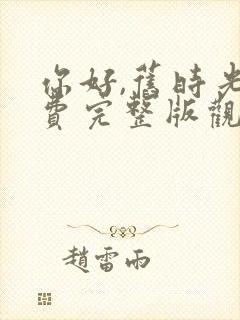 你好,舊時光
費完整版觀
趙雷雨